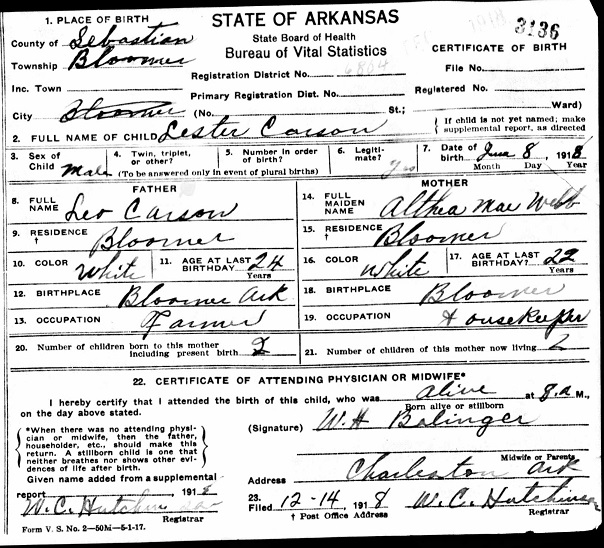 1. PLACE OF BIRTH STATE OF ARKANSAS 3136
County of Sebastian State Board of Health
Township Bloomer Bureau of Vital Statistics CERTIFICATE OF BIRTH
Registration District No. 6804 File No.
Inc. Town Primary Registration Dist. No. Registered No.
City Bloomer (No. St.; Ward)
2. FULL NAME OF CHILD Lester Carson { If child is not yet named; make supplemental report, as directed
3. Sex of Child Male 4. Twin, triplet, or other? 5. Number in order of birth? 6. Legiti-mate? Yes 7. Date of birth June 8 1918
(To be answered only in event of plural births) Month Day Year
FATHER MOTHER
8. FULL NAME Leo Carson 14. FULL MAIDEN NAME Althea Mae Webb
9. RESIDENCE † Bloomer 15. RESIDENCE † Bloomer
10. COLOR White 11. AGE AT LAST BIRTHDAY 24 Years 16. COLOR White 17. AGE AT LAST BIRTHDAY 22 Years
12. BIRTHPLACE Bloomer Ark 18. BIRTHPLACE Bloomer
13. OCCUPATION Farmer 19. OCCUPATION Housekeeper
20. Number of children born to this mother including present birth 2 21. Number of children of this mother now living 2
22. CERTIFICATE OF ATTENDING PHYSICIAN OR MIDWIFE*
I hereby certify that I attended the birth of this child, who was alive at 8.a M.,
on the day above stated. Born alive or stillborn
*When there was no attending physi-
cian or midwife, then the father,
householder, etc., should make this
return. A stillborn child is one that
neither breathes nor shows other evi-
dences of life after birth.
(Signature) W. H Balinger
Midwife or Parents
Given name added from a supplemental Address Charleston Ark
report 191 8 23. Filed 12-14, 191 8 W. C. Hutchins
W. C. Hutchins Registrar † Post Office Address Registrar
Form V. S. No. 2—50M—5-1-17.